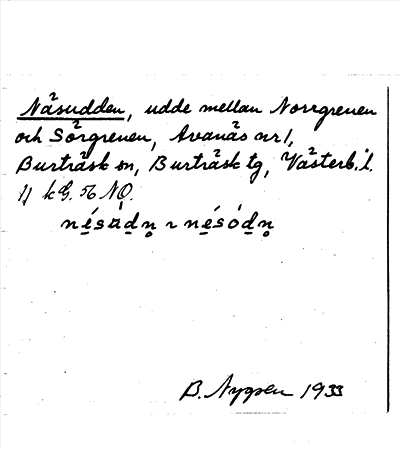 Näsudden, udde mellan Norrgrenen
och Sörgrenen, Avanäs nr 1,
Burträsk sn, Burträsk tg, Västerb. l.
1) kG. 56 NO.
nésu̇dn̥ ~ nésódn̥
B. Nygren 1933